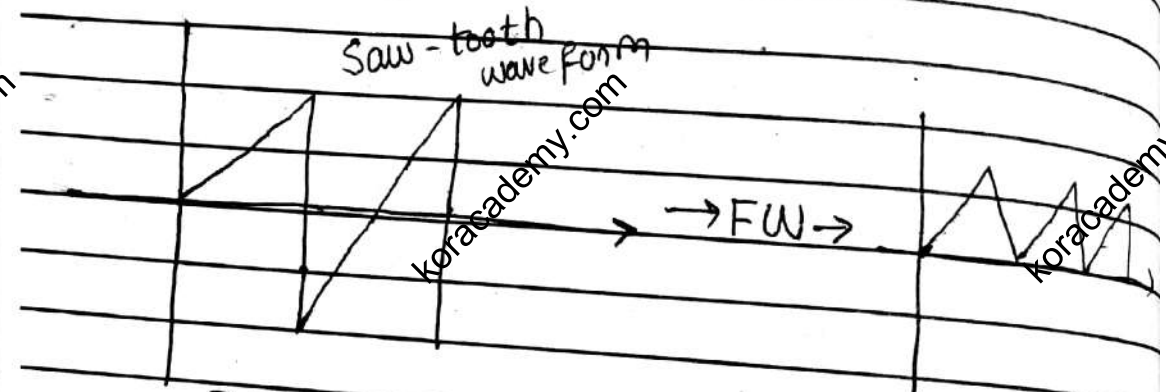 Saw-tooth
waveform
→FW→
koracademy.com
koracademy
m